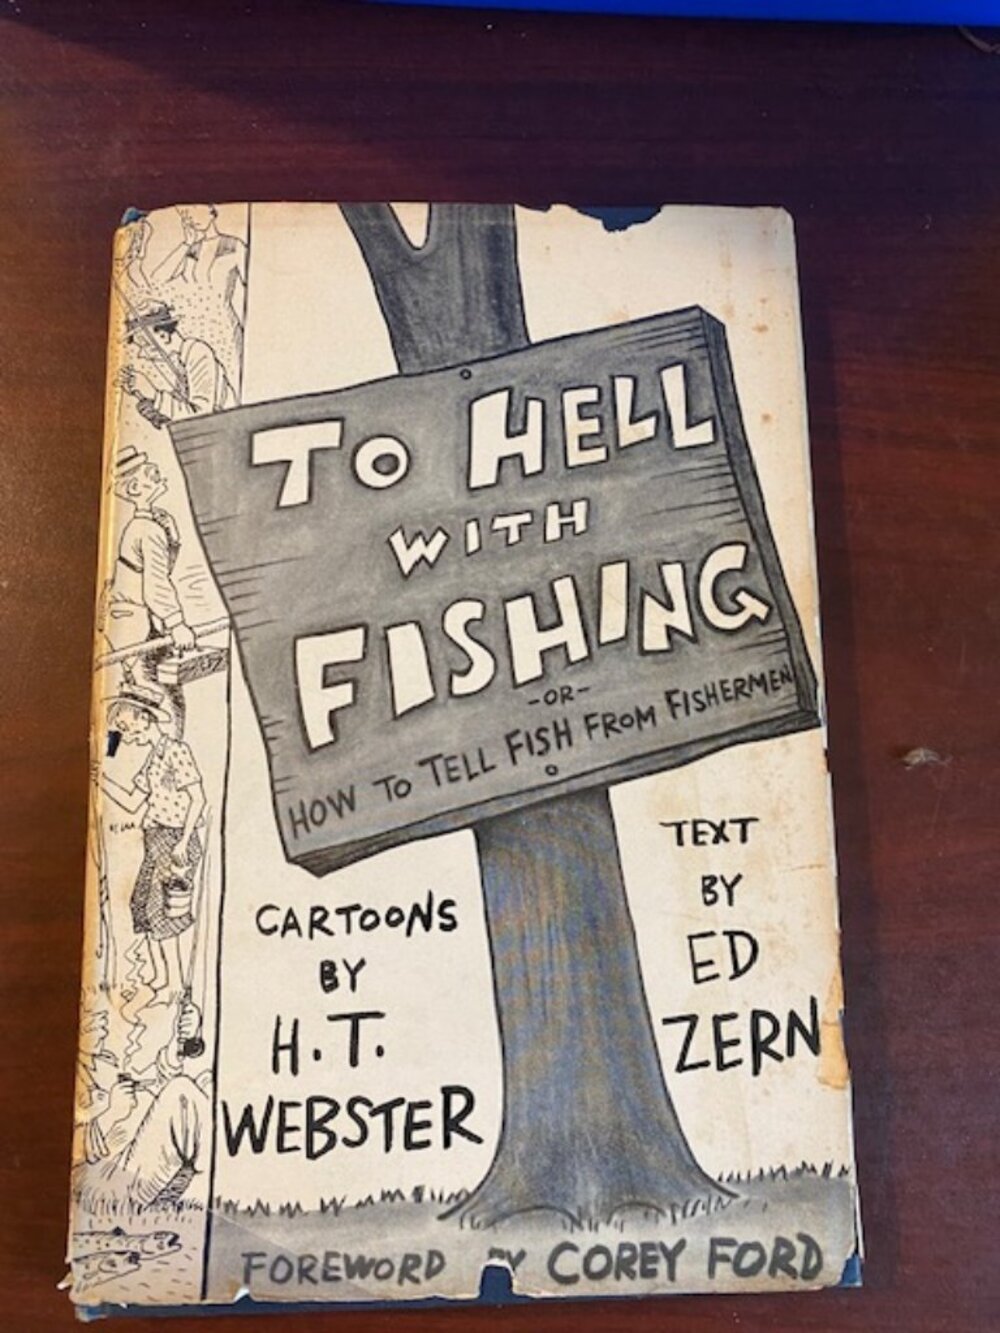 TO HELL
WITH
FISHING
-OR-
HOW TO TELL FISH FROM FISHERMEN
CARTOONS
BY
H. T.
WEBSTER
TEXT
BY
ED
ZERN
FOREWORD BY COREY FORD